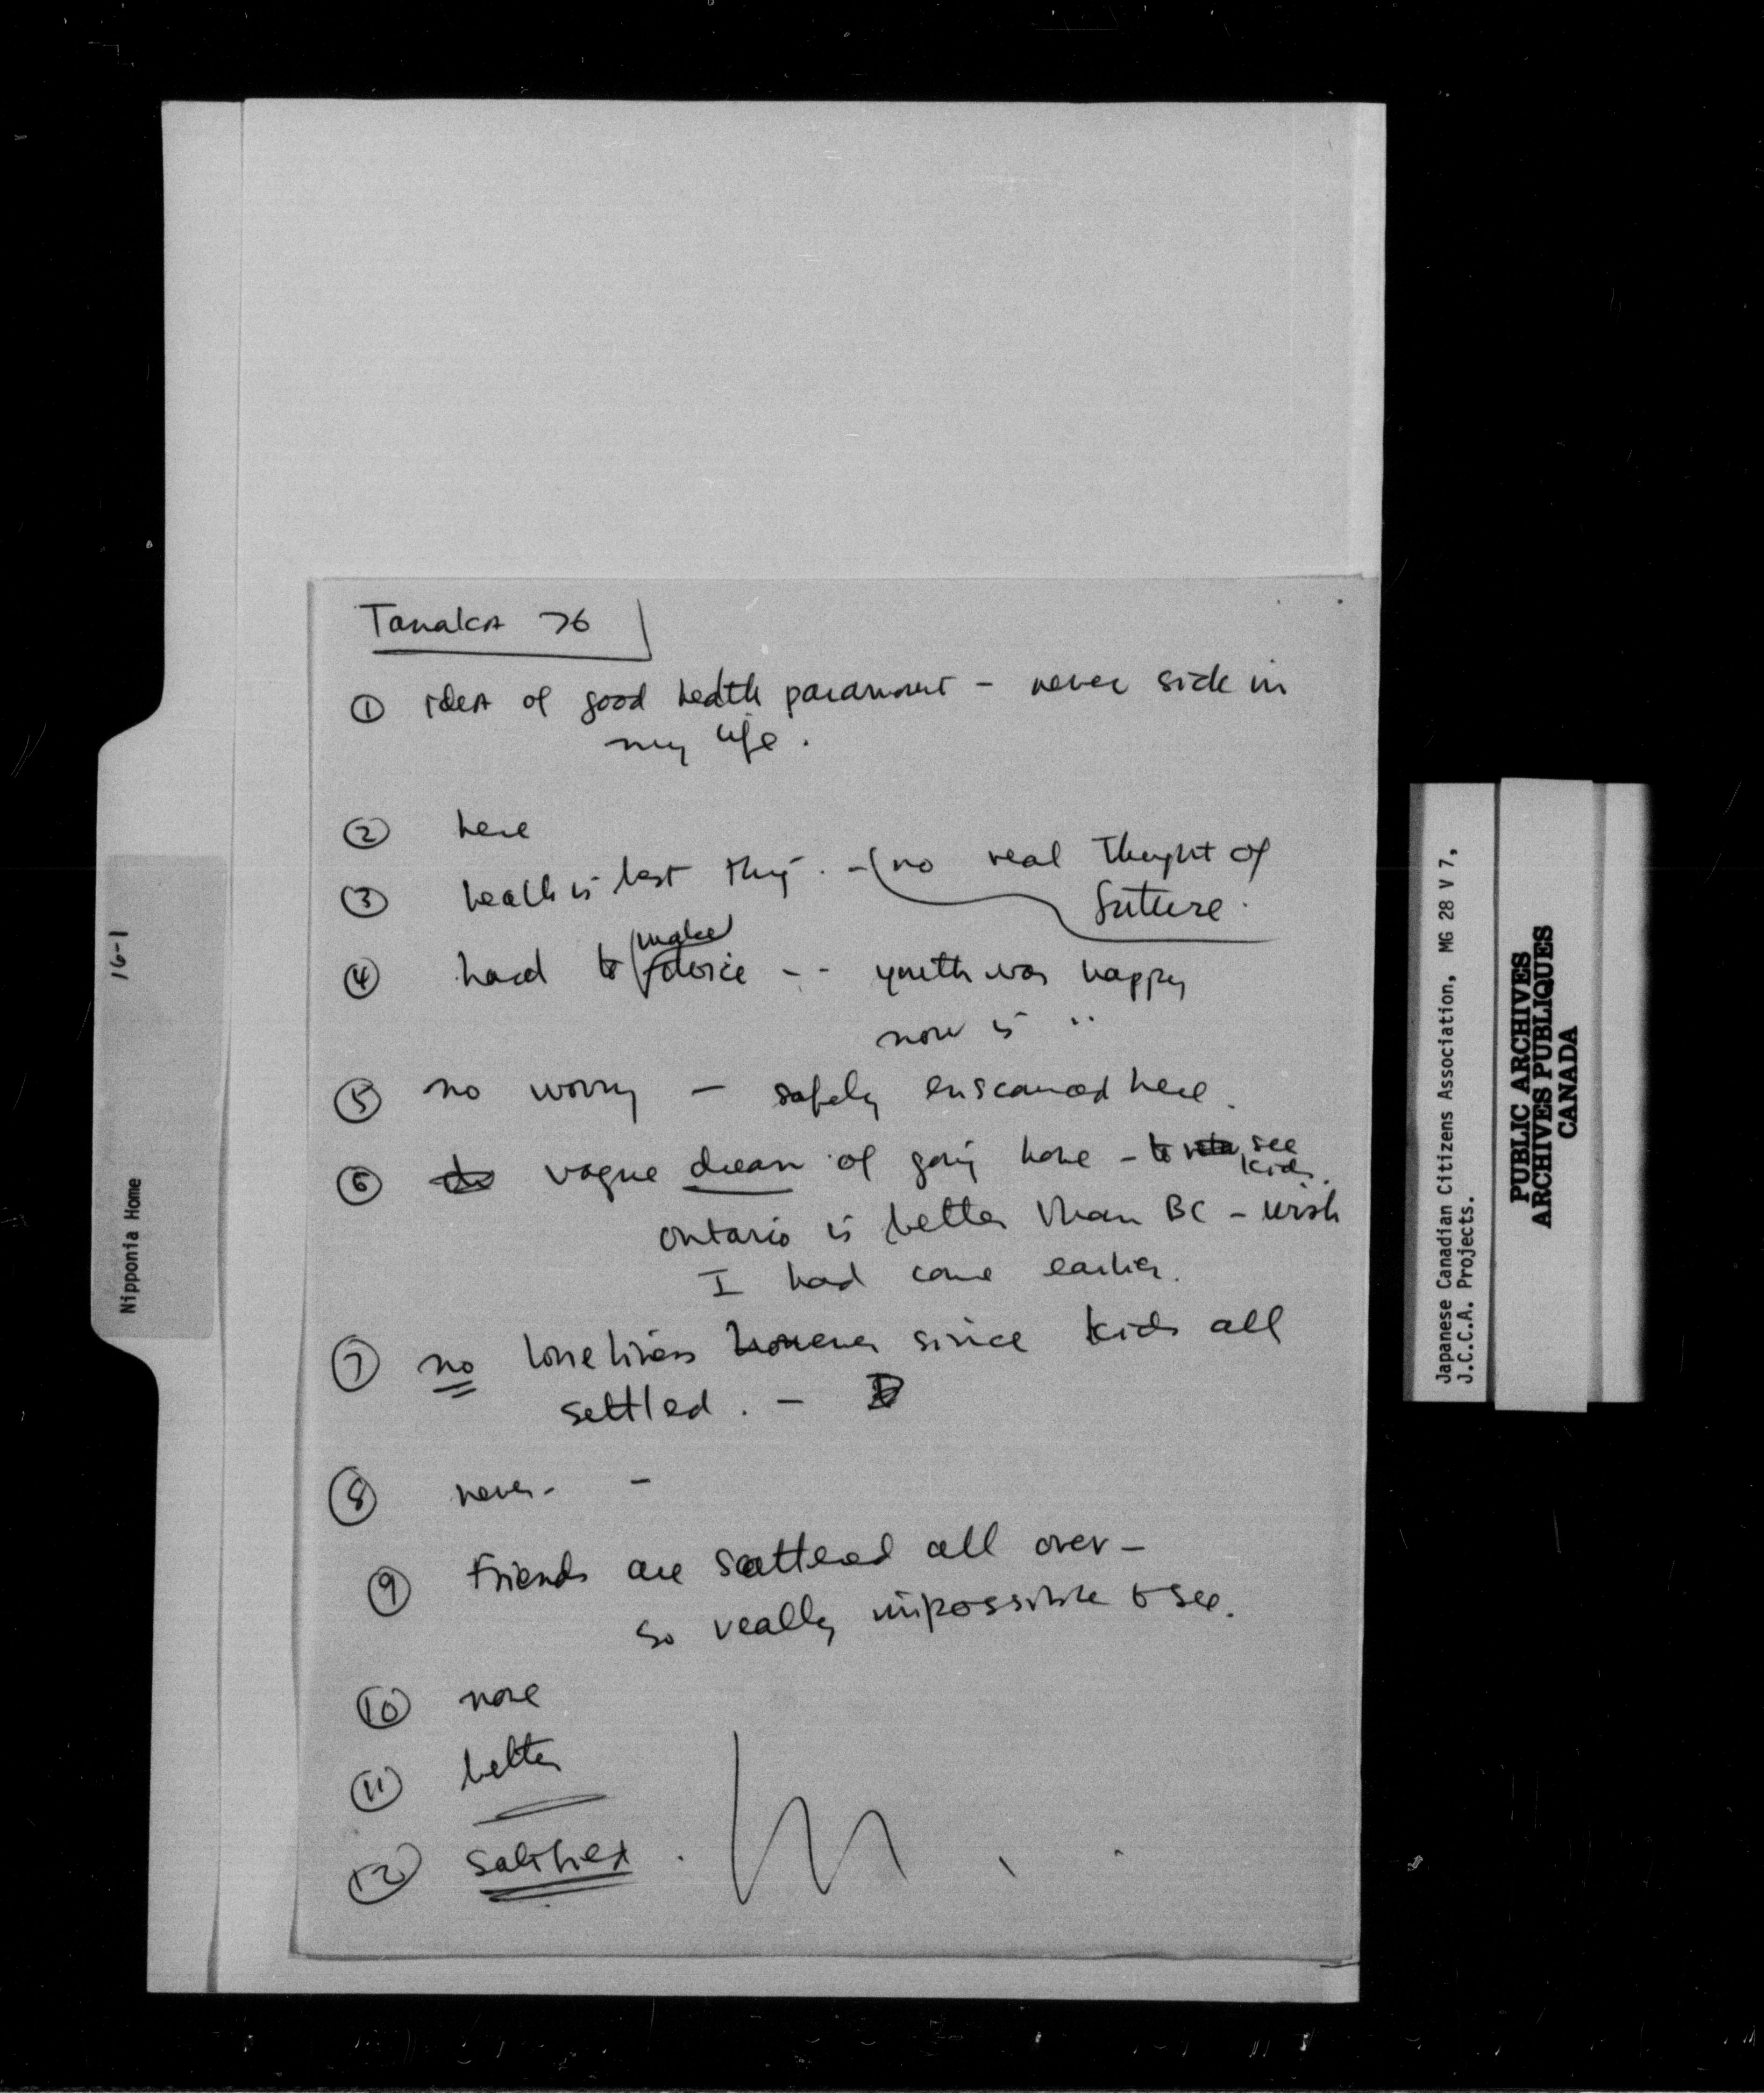 Tanaka 76
① idea of good health paramount - never sick in
my life.
② here
③ health is best thing. - (no real thought of
future.
④ hard to make choice - - youth was happy
now is "
⑤ no worry - safely ensconced here.
⑥ vague dream of going home - to see
kids.
Ontario is better than BC - wish
I had come earlier.
⑦ no loneliness however since kids all
settled. -
⑧ never - -
⑨ Friends are scattered all over -
so really impossible to see.
⑩ none
⑪ better
⑫ satisfied.
16-1
Nipponia Home
Japanese Canadian Citizens Association, MG 28 V 7,
J.C.C.A. Projects.
PUBLIC ARCHIVES
ARCHIVES PUBLIQUES
CANADA